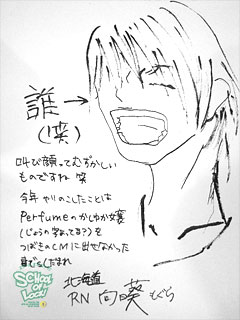 誰→
(笑)
叫び顔ってむずかしい
ものですね 笑
今年 やりのこしたことは
Perfumeのかしゆか嬢
(じょうの字あってる??)を
つばきのCMに出せなかった
SCHOOL OF LOCK!
北海道
RN 向葵もぐら